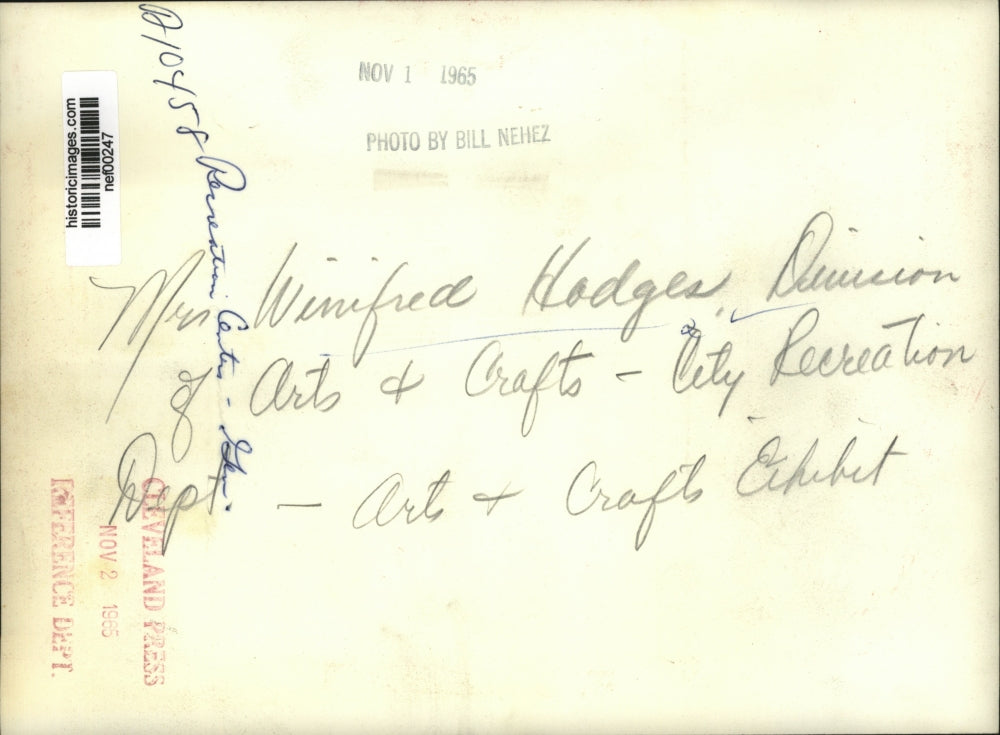 NOV 1 1965
PHOTO BY BILL NEHEZ
historicimages.com
nef00247
A10458 Recreation Centers - Gen.
Mrs Winifred Hodges, Division
of Arts & Crafts - City Recreation
Dept - Arts & Crafts Exhibit
CLEVELAND PRESS
NOV 2 1965
REFERENCE DEPT.